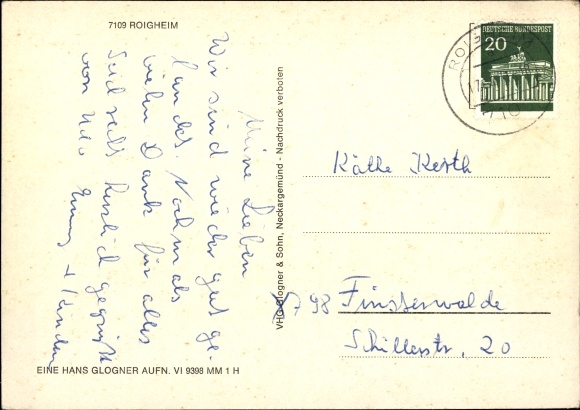 7109 ROIGHEIM
Meine Lieben
Wir sind wieder gut ge-
landet. Nochmals
vielen Dank für alles
Seid recht herzlich gegrüßt
von Udo + Kinder
EINE HANS GLOGNER AUFN. VI 9398 MM 1 H
VHG Glogner & Sohn, Neckargemünd - Nachdruck verboten
DEUTSCHE BUNDESPOST
20
ROIG
710
Käthe Kerth
X 798 Finsterwalde
Schillerstr. 20